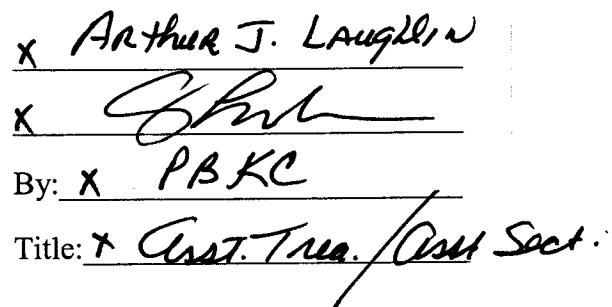 x Arthur J. Laughlin
x
By: x PBKC
Title: x Asst. Trea. / Asst Sect.